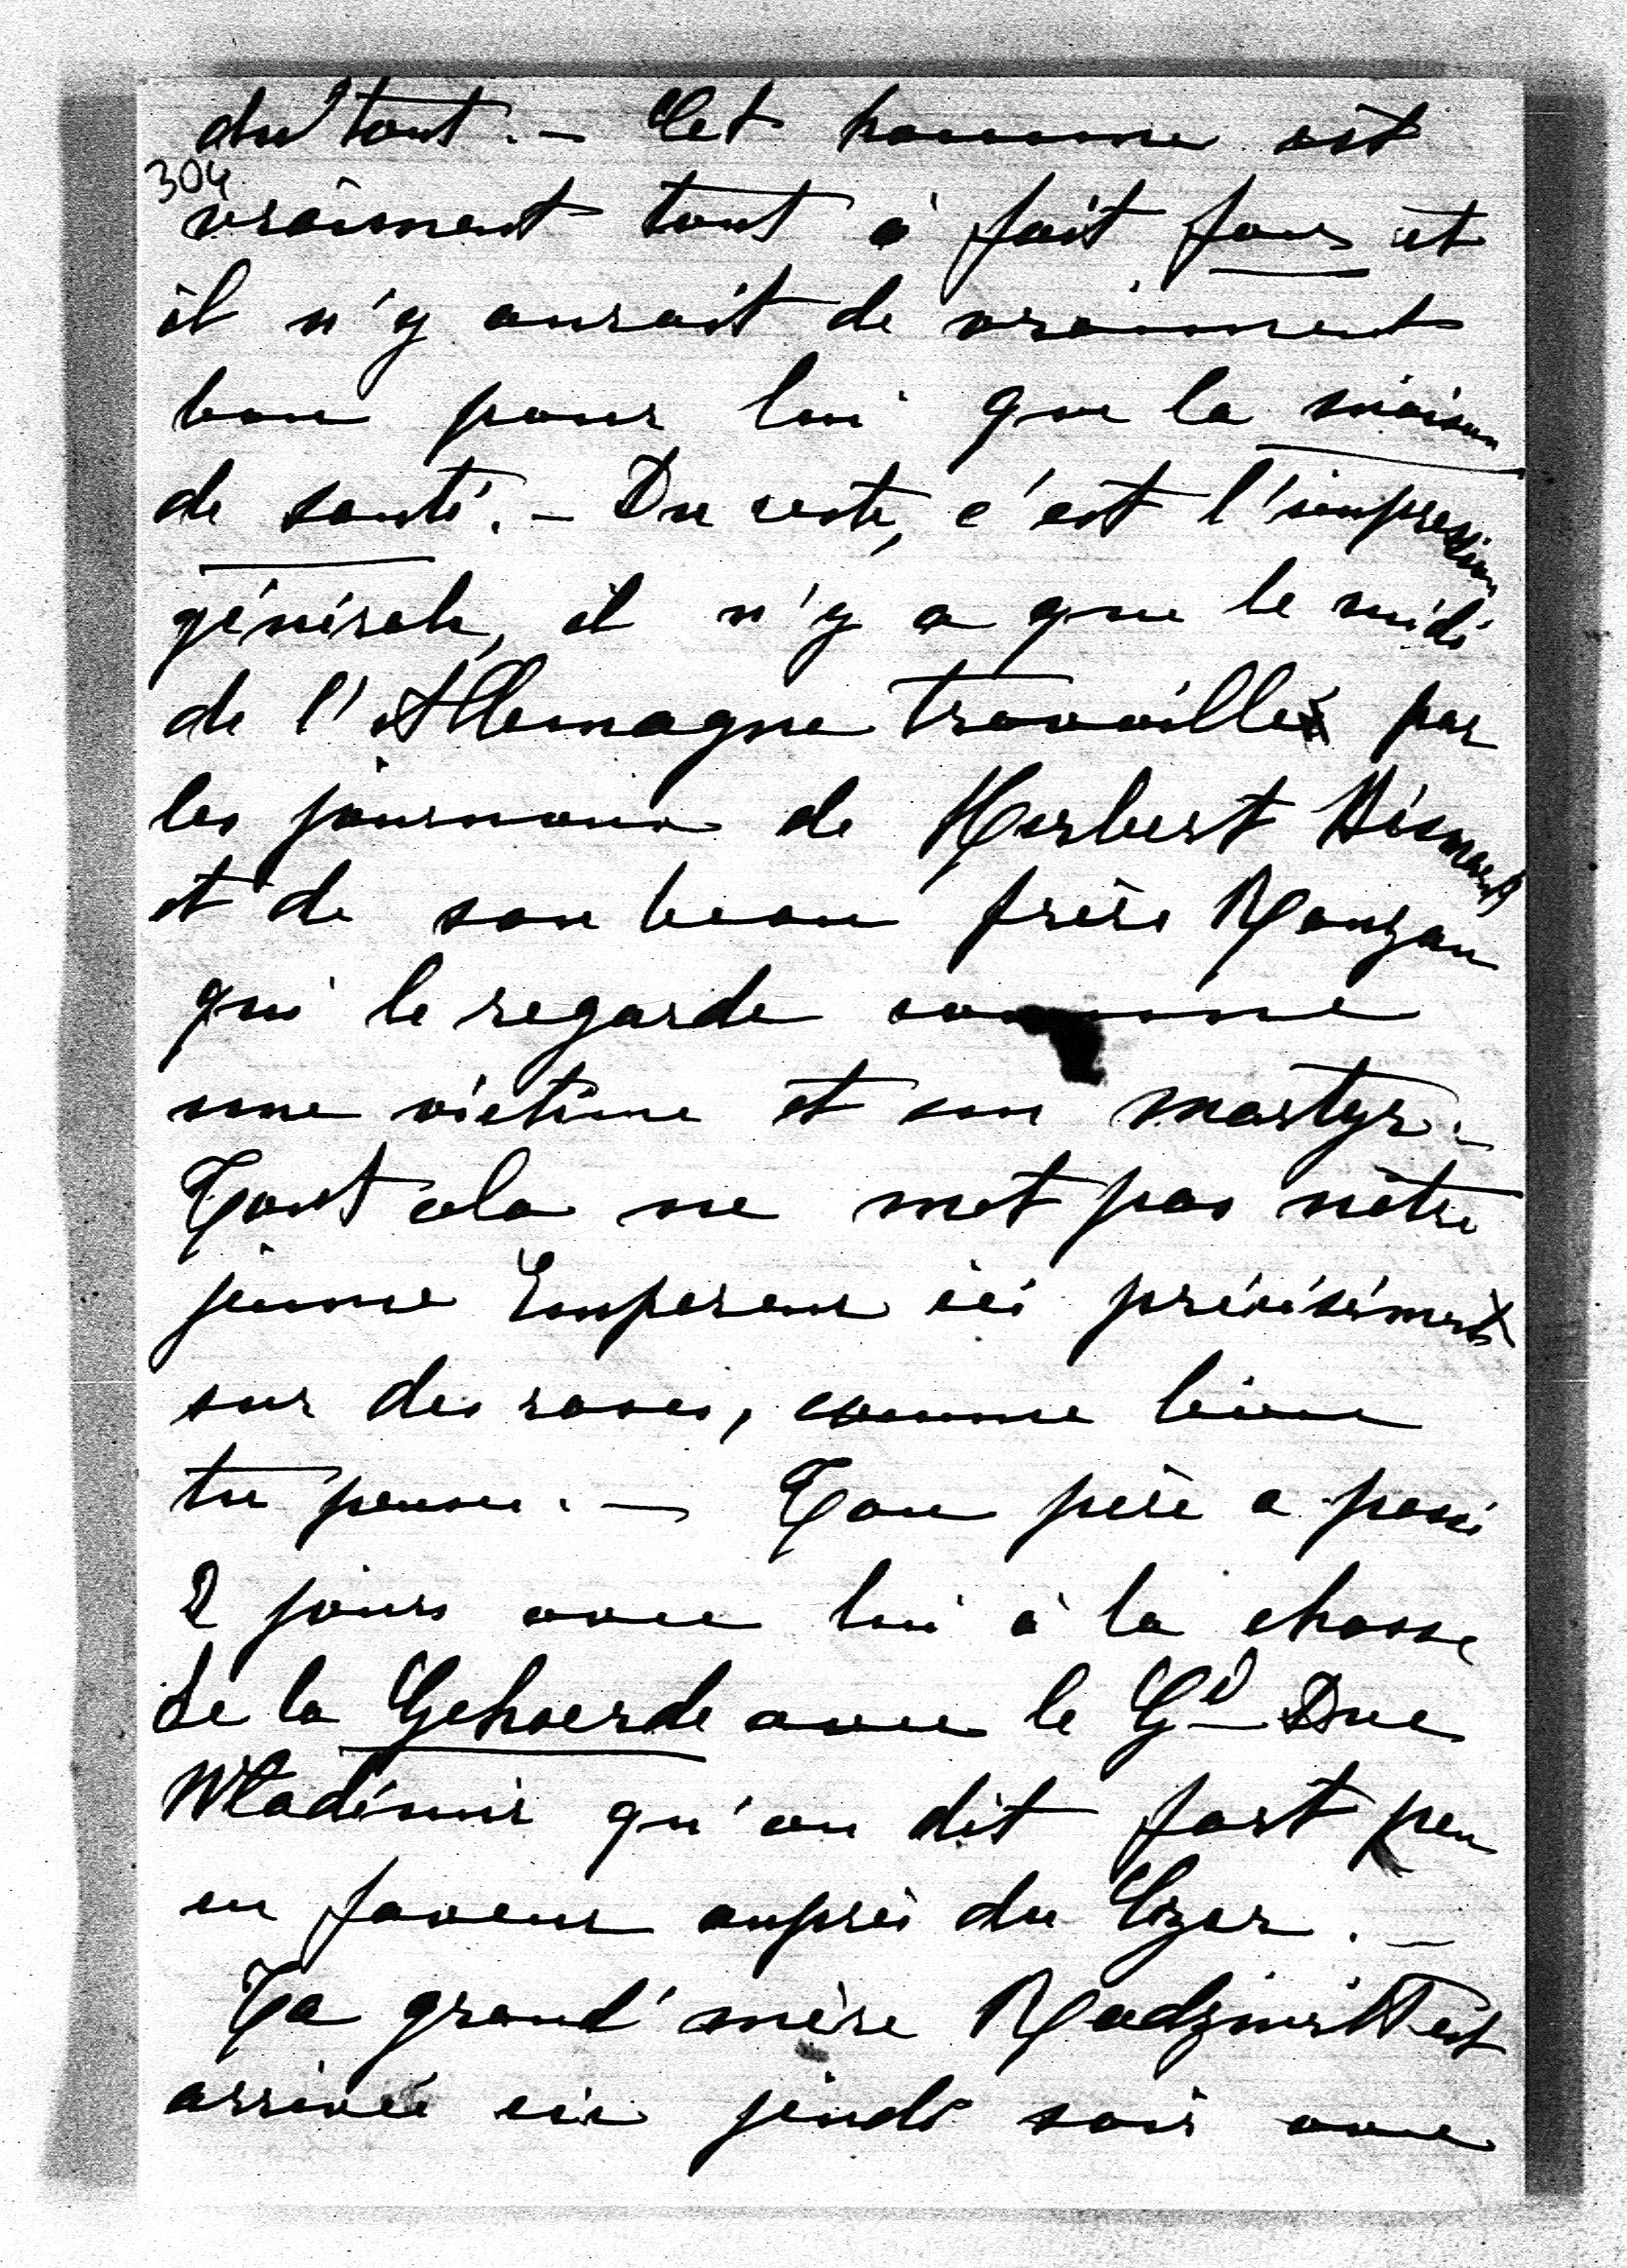 du tout. — Cet homme est
304
vraiment tout à fait fou et
il n'y aurait de vraiment
bon pour lui que la maison
de santé. — Du reste, c'est l'impression
générale, il n'y a que le midi
de l'Allemagne travaillé par
les journaux de Herbert Bismark
et de son beau frère Ranzau
qui le regarde comme
une victime et un martyr. —
Tout cela ne met pas nôtre
jeune Empereur ici précisément
sur des roses, comme bien
tu penses. — Ton père a passé
2 jours avec lui à la chasse
de la Gehoerde avec le Gd Duc
Wladimir qu'on dit fort peu
en faveur auprès du Czar. —
Ta grand'mère Radziwill est
arrivée ici jeudi soir avec